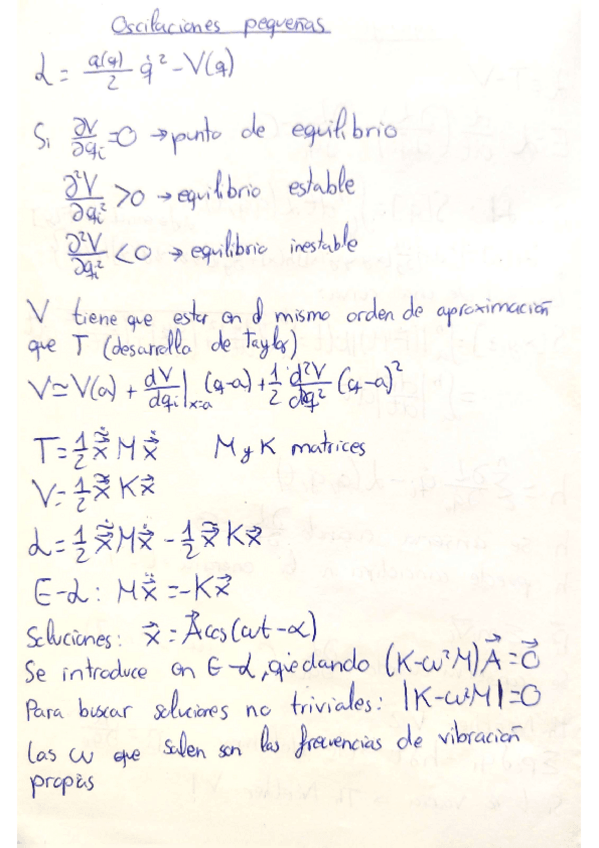 Oscilaciones pequeñas
L = a(q)/2 q̇² - V(q)
Si ∂V/∂qᵢ = 0 → punto de equilibrio
∂²V/∂qᵢ² > 0 → equilibrio estable
∂²V/∂qᵢ² < 0 → equilibrio inestable
V tiene que estar en el mismo orden de aproximación
que T (desarrollo de Taylor)
V ≃ V(a) + dV/dqᵢ|ₓ₌ₐ (q-a) + 1/2 d²V/dq² (q-a)²
T = 1/2 x̃̇ M ẋ⃗ M y K matrices
V = 1/2 x̃ K x⃗
L = 1/2 x̃̇ M ẋ⃗ - 1/2 x̃ K x⃗
E-L: M ẍ⃗ = -K x⃗
Soluciones: x⃗ = A⃗ cos(ωt - α)
Se introduce en E-L, quedando (K-ω²M) A⃗ = 0⃗
Para buscar soluciones no triviales: |K-ω²M| = 0
Las ω que salen son las frecuencias de vibración
propias